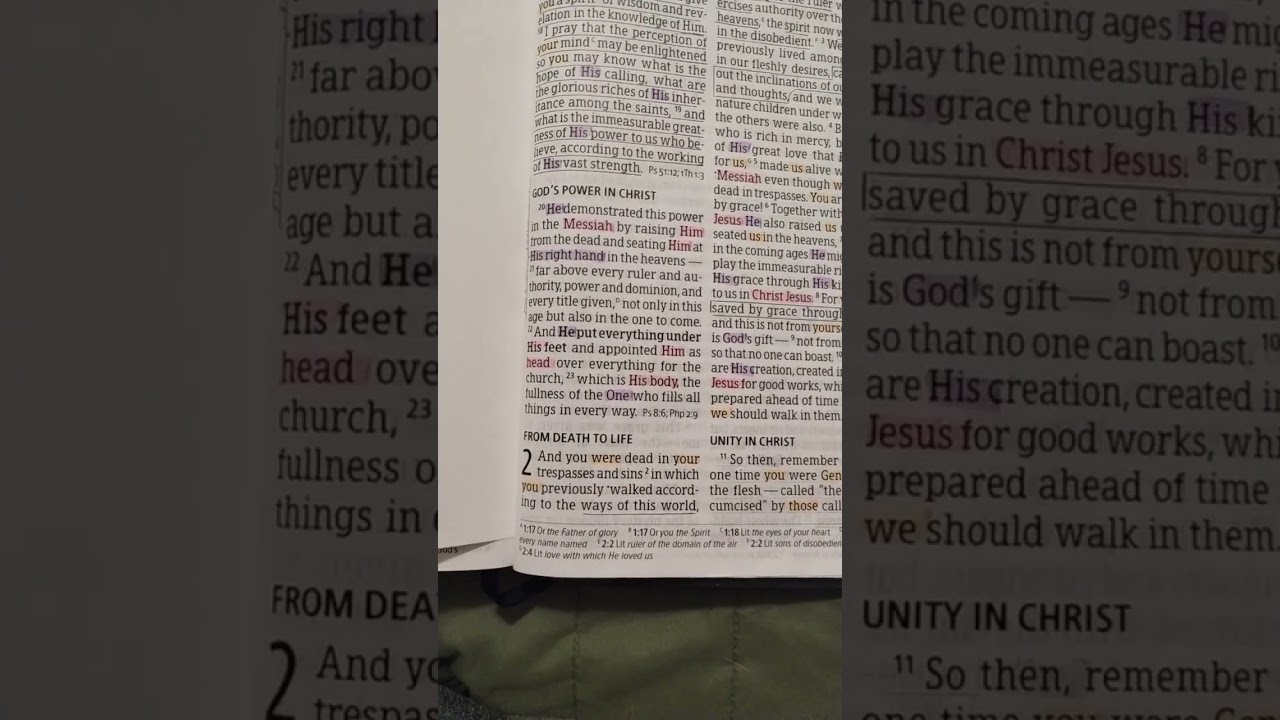 His right
²¹ far abo
thority, po
every title
age but a
²² And He
His feet a
head ove
church, ²³
fullness o
things in
FROM DEA
2 And yo
trespas
you a spirit of wisdom and rev-
elation in the knowledge of Him.
¹⁸ I pray that the perception of
your mind ᶜ may be enlightened
so you may know what is the
hope of His calling, what are
the glorious riches of His inher-
itance among the saints, ¹⁹ and
what is the immeasurable great-
ness of His power to us who be-
lieve, according to the working
of His vast strength. Ps 51:12; 1Th 1:3
GOD'S POWER IN CHRIST
²⁰ He demonstrated this power
in the Messiah by raising Him
from the dead and seating Him at
His right hand in the heavens —
²¹ far above every ruler and au-
thority, power and dominion, and
every title given, ᴰ not only in this
age but also in the one to come.
²² And He put everything under
His feet and appointed Him as
head over everything for the
church, ²³ which is His body, the
fullness of the One who fills all
things in every way. Ps 8:6; Php 2:9
FROM DEATH TO LIFE
2 And you were dead in your
trespasses and sins ² in which
you previously •walked accord-
ing to the ways of this world,
ercises authority over the
heavens, ᴱ the spirit now w
in the disobedient. ᶠ ³ We
previously lived among
in our fleshly desires, ca
out the inclinations of ou
and thoughts, and we w
nature children under w
the others were also. ⁴ B
who is rich in mercy, b
of His great love that
for us, ᴳ ⁵ made us alive w
•Messiah even though w
dead in trespasses. You ar
by grace! ⁶ Together with
Jesus He also raised us
seated us in the heavens,
in the coming ages He mi
play the immeasurable ri
His grace through His ki
to us in Christ Jesus. ⁸ For y
saved by grace throug
and this is not from yours
is God's gift — ⁹ not from
so that no one can boast. ¹⁰
are His creation, created i
Jesus for good works, whi
prepared ahead of time
we should walk in them.
UNITY IN CHRIST
¹¹ So then, remember
one time you were Gen
the flesh — called "the
cumcised" by those call
ᴬ 1:17 Or the Father of glory ᴮ 1:17 Or you the Spirit ᶜ 1:18 Lit the eyes of your heart
every name named ᴱ 2:2 Lit ruler of the domain of the air ᶠ 2:2 Lit sons of disobedien
ᴳ 2:4 Lit love with which He loved us
in the coming ages He mig
play the immeasurable ri
His grace through His ki
to us in Christ Jesus. ⁸ For y
saved by grace through
and this is not from yourse
is God's gift — ⁹ not from
so that no one can boast. ¹⁰
are His creation, created i
Jesus for good works, whi
prepared ahead of time
we should walk in them.
UNITY IN CHRIST
¹¹ So then, remember